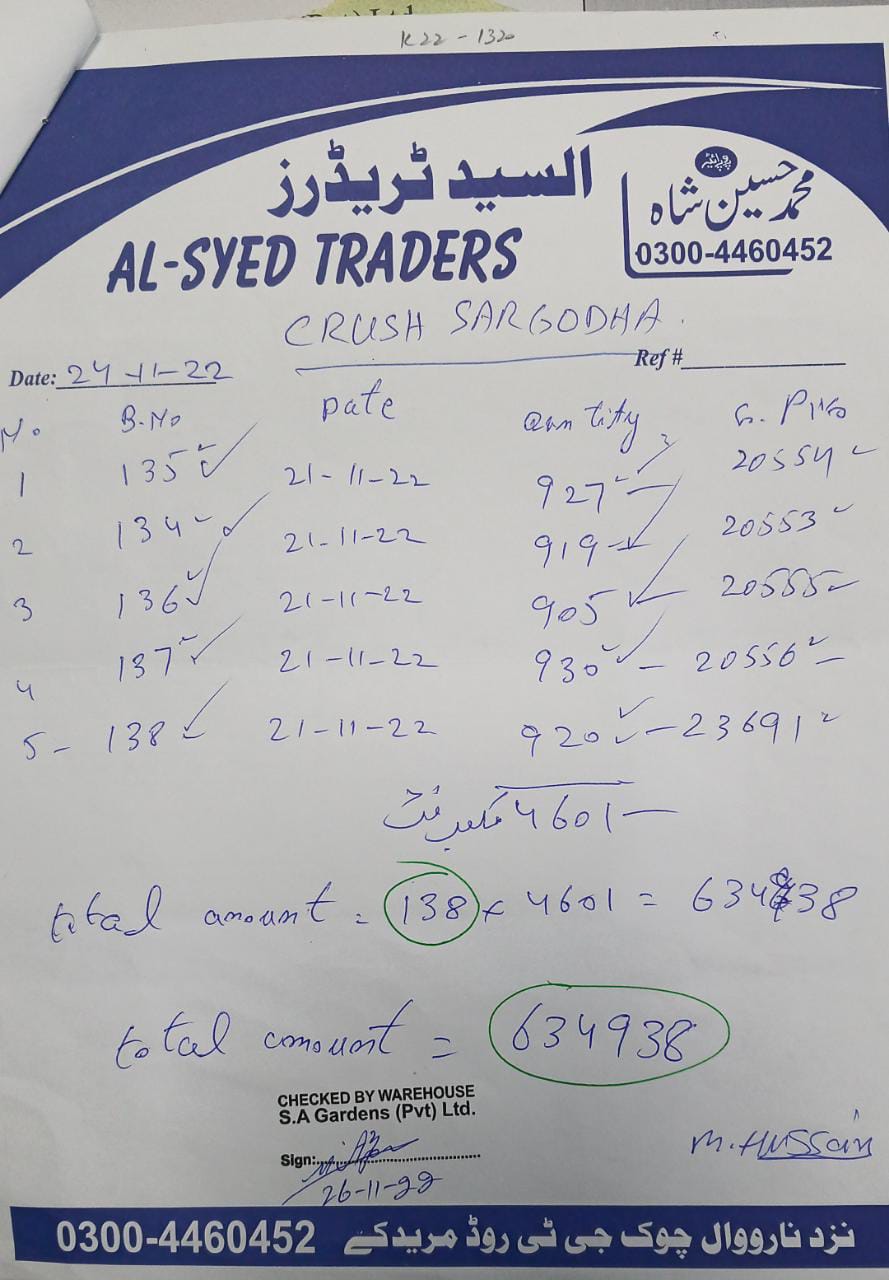 K22-1320
السید ٹریڈرز
پروپرائیٹر
محمد حسین شاہ
0300-4460452
AL-SYED TRADERS
CRUSH SARGODHA.
Date: 24-11-22 Ref #
No B.No Date Quantity
1 135 21-11-22 927 20554
2 134 21-11-22 919 20553
3 136 21-11-22 905 20555
4 137 21-11-22 930 - 20556
5- 138 21-11-22 920 - 23691
4601 مکعب فٹ
total amount = 138 x 4601 = 634938
total amount = 634938
CHECKED BY WAREHOUSE
S.A Gardens (Pvt) Ltd.
Sign:
26-11-22
M.Hussain
0300-4460452 نزد نارووال چوک جی ٹی روڈ مریدکے